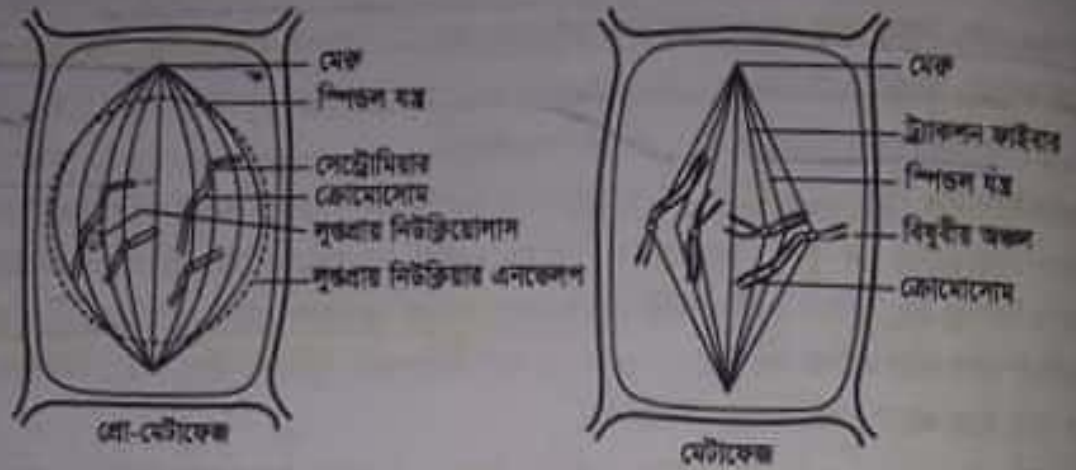 মেরু
স্পিন্ডল যন্ত্র
সেন্ট্রোমিয়ার
ক্রোমোসোম
লুপ্তপ্রায় নিউক্লিয়োলাস
লুপ্তপ্রায় নিউক্লিয়ার এনভেলপ
প্রো-মেটাফেজ
মেরু
ট্র্যাকশন ফাইবার
স্পিন্ডল যন্ত্র
বিষুবীয় অঞ্চল
ক্রোমোসোম
মেটাফেজ